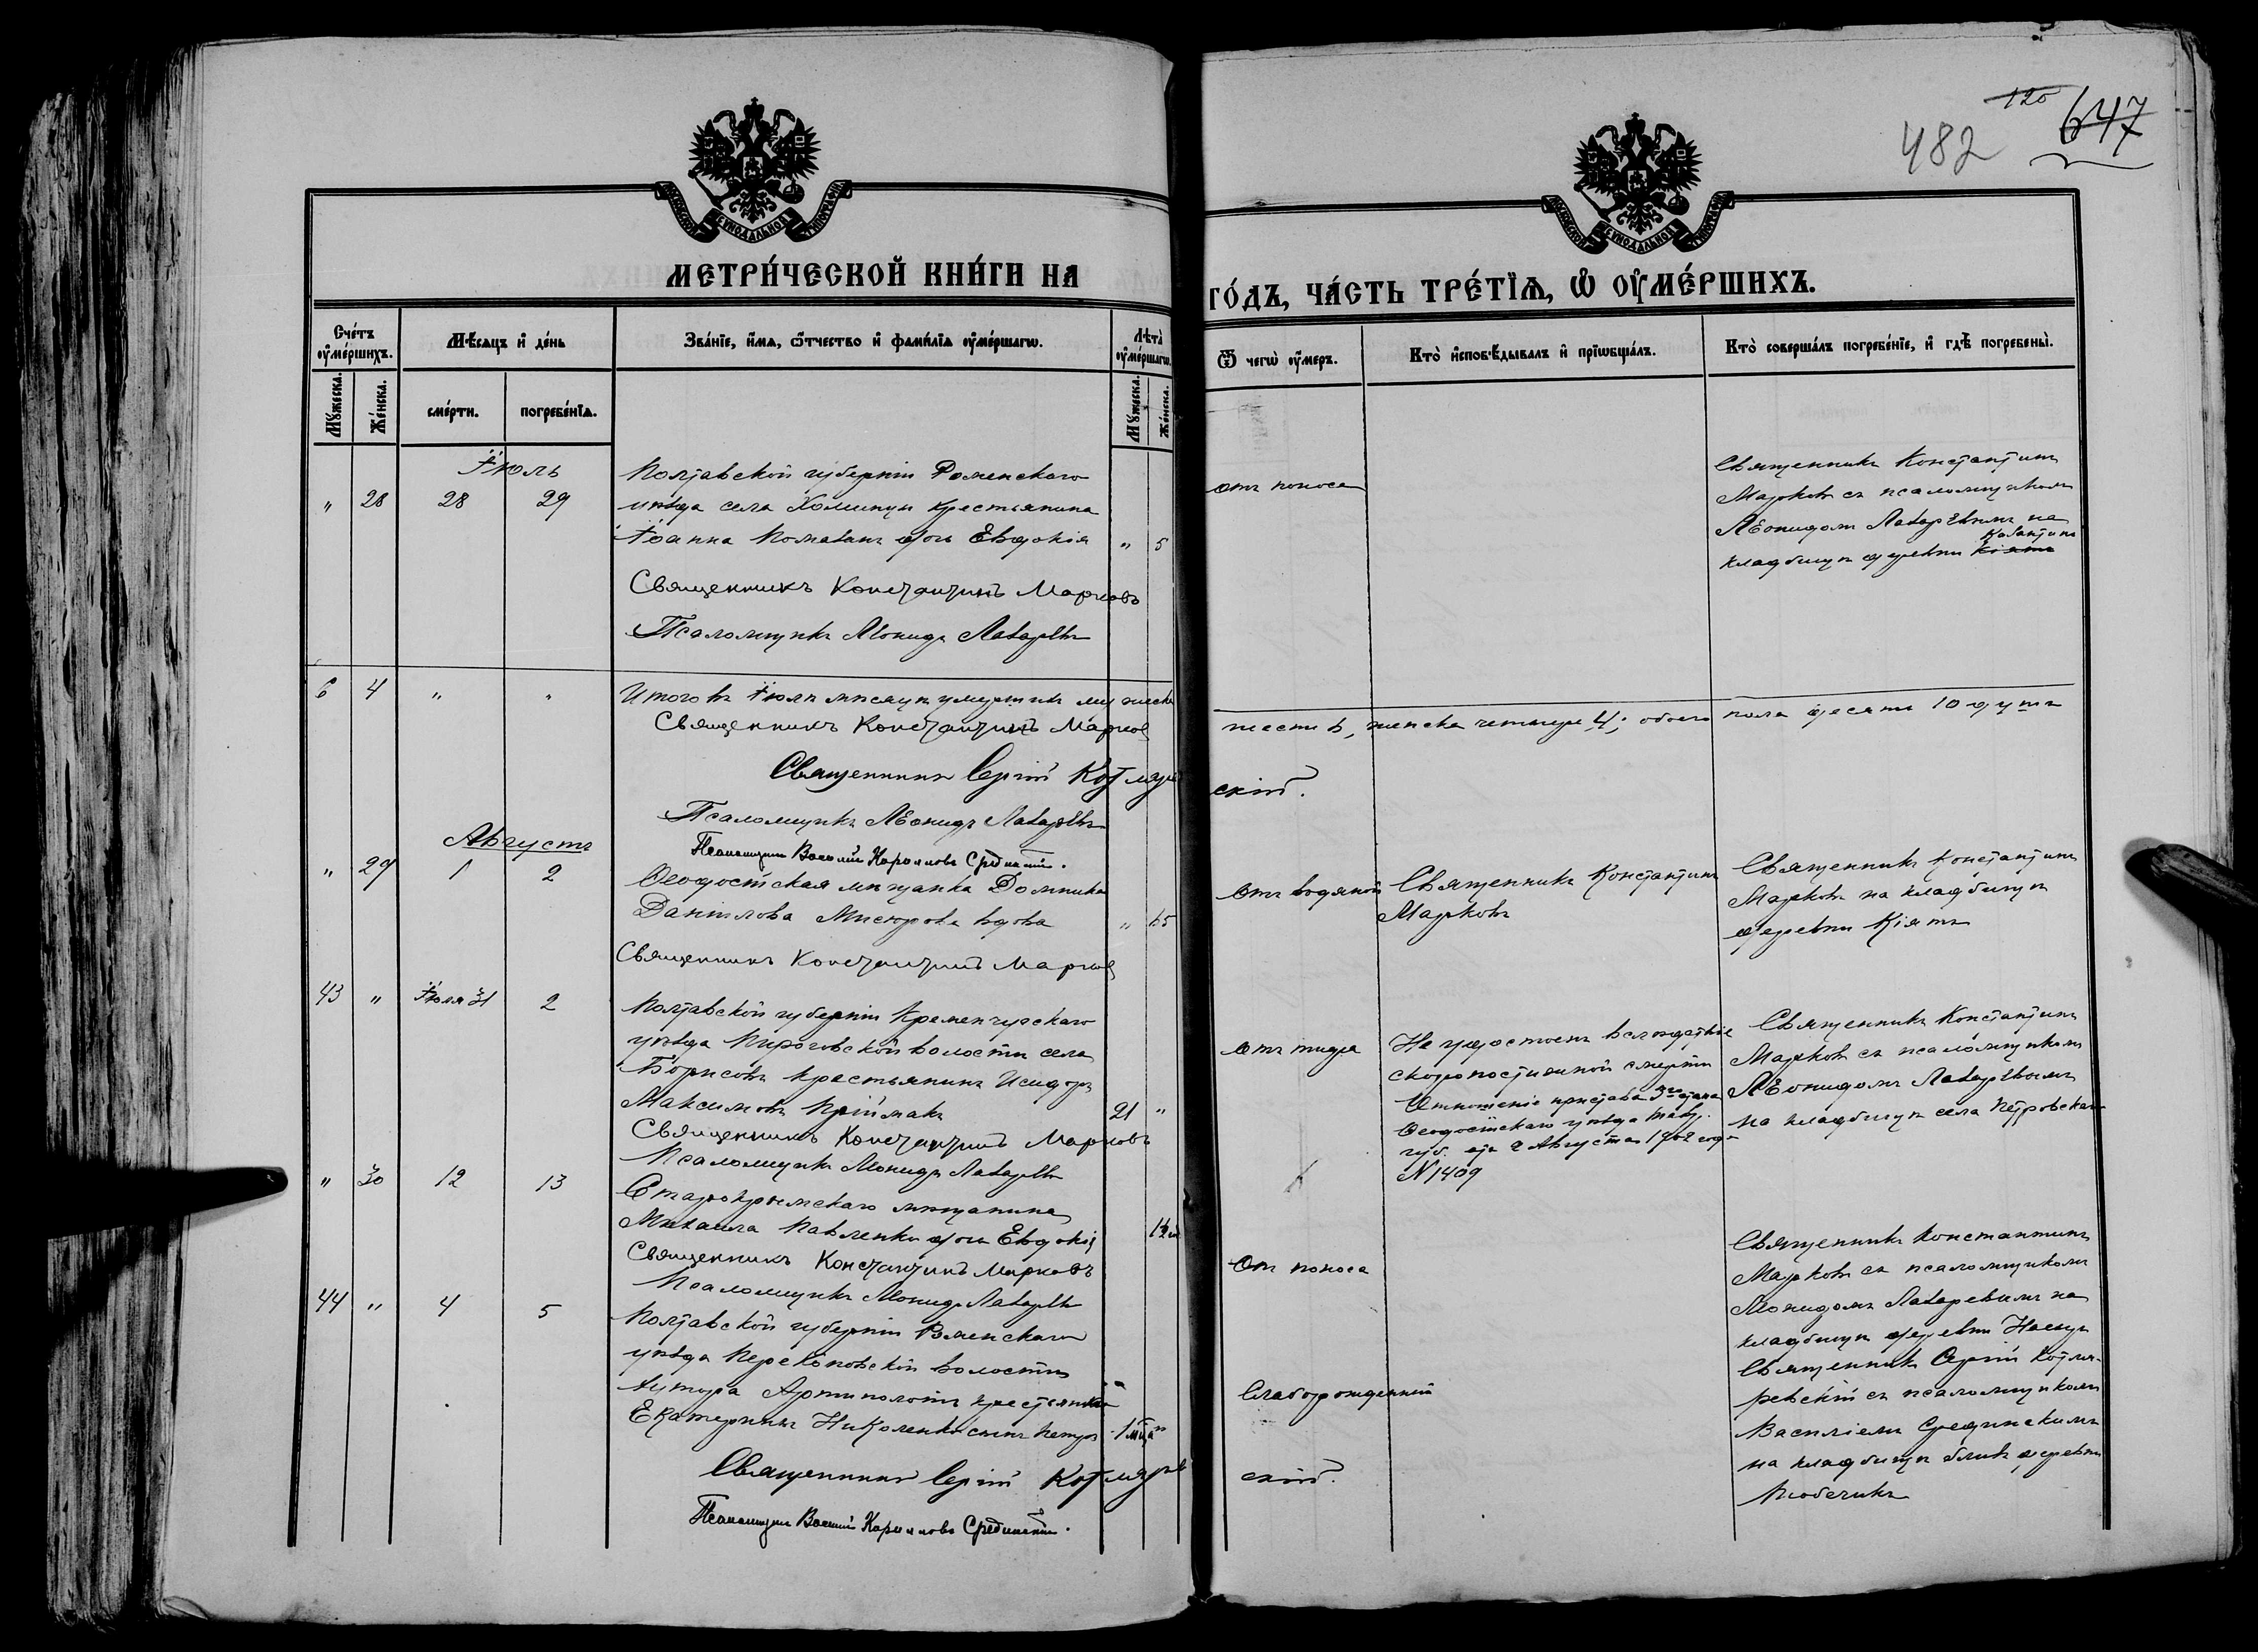 120
482
647
МЕТРИ́ЧЕСКОЙ КНИ́ГИ НА
ГО́ДЪ, ЧА́СТЬ ТРЕ́ТЇѦ, Ѡ ОУ҆МЕ́РШИХЪ.
Сче́тъ оу҆ме́ршихъ.
Мѣ́сяцъ и҆ де́нь
Зва́нїе, и҆́мѧ, ѻ҆́тчество и҆ фами́лїѧ оу҆ме́ршагѡ.
Лѣта̀ оу҆ме́ршагѡ.
Ѿ чегѡ̀ оу҆́меръ.
Кто̀ и҆сповѣ́дывалъ и҆ прїѡбща́лъ.
Кто̀ соверша́лъ погребе́нїе, и҆ гдѣ̀ погребены̀.
Мꙋ́жеска.
Же́нска.
сме́рти.
погребе́нїѧ.
Мꙋ́жеска.
Же́нска.
Іюль
" 28 28 29
Полтавской губерніи Роменскаго
уѣзда села Хоминцы крестьянина
Іоанна дочь Евдокія " 5
Священникъ Константинъ Марковъ
Псаломщикъ Леонидъ Лазаревъ
отъ поноса
Священникъ Константинъ
Марковъ съ псаломщикомъ
Леонидомъ Лазаревымъ на
кладбищѣ деревни Кіятъ
6 4 " "
Итого въ Іюлѣ мѣсяцѣ умершихъ мужеска
шести 6, женска четыре 4; обоего пола десять 10 душъ
Священникъ Константинъ Марковъ
Священникъ Сергій Котляревскій.
Псаломщикъ Леонидъ Лазаревъ
Псаломщикъ Василій Карповъ Срединскій.
Августъ
" 29 1 2
Ѳеодосійская мѣщанка Домника
Даніилова Мисюрова вдова " 65
Священникъ Константинъ Марковъ
Отъ водяной
Священникъ Константинъ
Марковъ
Священникъ Константинъ
Марковъ на кладбищѣ
деревни Кіятъ
43 " Іюля 31 2
Полтавской губерніи Кременчугскаго
уѣзда Пироговской волости села
Борисовъ крестьянинъ Исидоръ
Максимовъ Пріймакъ 21 "
Священникъ Константинъ Марковъ
Псаломщикъ Леонидъ Лазаревъ
Отъ тифа
Не удостоенъ вслѣдствіе
скоропостижной смерти
Отношеніе пристава 3го стана
Ѳеодосійскаго уѣзда Тавр.
губ. отъ 2 Августа 1902 года
N 1409
Священникъ Константинъ
Марковъ съ псаломщикомъ
Леонидомъ Лазаревымъ
на кладбищѣ села Петровскаго
" 30 12 13
Старокрымскаго мѣщанина
Михаила Павленко дочь Евдокія
Священникъ Константинъ Марковъ
Псаломщикъ Леонидъ Лазаревъ
Отъ поноса
Священникъ Константинъ
Марковъ съ псаломщикомъ
Леонидомъ Лазаревымъ на
кладбищѣ деревни
44 " 4 5
Полтавской губерніи Роменскаго
уѣзда Перекоповской волости
хутора Артиполотъ крестьянки
Екатерины Николенко сынъ Петръ 1 мѣца "
Священникъ Сергій Котляревскій.
Псаломщикъ Василій Карповъ Срединскій.
Слаборожденный
Священникъ Сергій Котля-
ревскій съ псаломщикомъ
Василіемъ Срединскимъ
на кладбищѣ близъ деревни